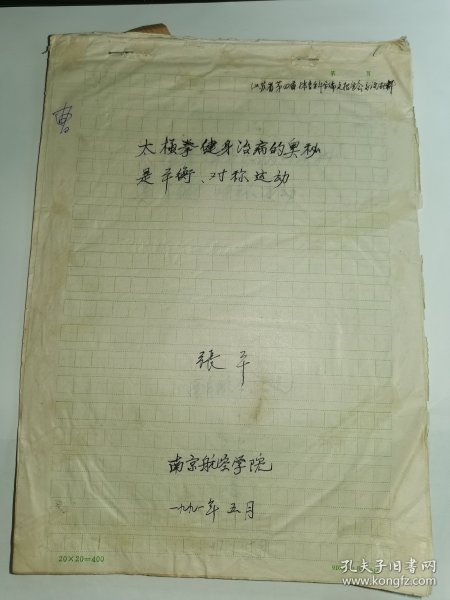 第 页
江苏省第四届体育科学论文报告会交流材料
曹
太极拳健身治病的奥秘
是平衡、对称运动
張平
南京航空学院
一九九一年五月
20×20=400
孔夫子旧书网
www.kongfz.com